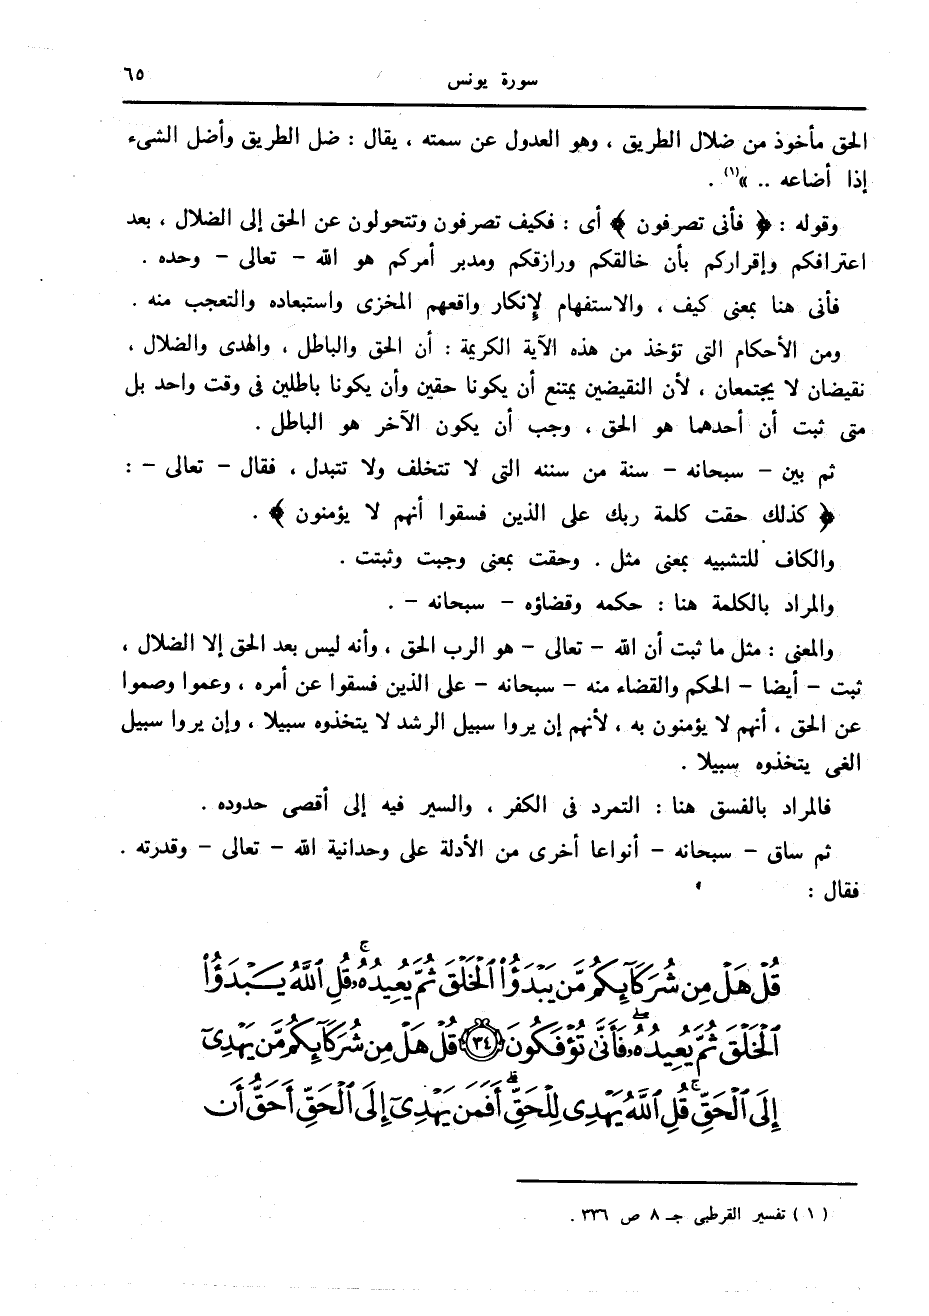 سورة يونس ٦٥
الحق مأخوذ من ضلال الطريق ، وهو العدول عن سمته ، يقال : ضل الطريق وأضل الشىء
إذا أضاعه .. »(١) .
وقوله : ﴿ فأنى تصرفون ﴾ أى : فكيف تصرفون وتتحولون عن الحق إلى الضلال ، بعد
اعترافكم وإقراركم بأن خالقكم ورازقكم ومدبر أمركم هو الله – تعالى – وحده .
فأنى هنا بمعنى كيف ، والاستفهام لإنكار واقعهم المخزى واستبعاده والتعجب منه .
ومن الأحكام التى تؤخذ من هذه الآية الكريمة : أن الحق والباطل ، والهدى والضلال ،
نقيضان لا يجتمعان ، لأن النقيضين يمتنع أن يكونا حقين وأن يكونا باطلين فى وقت واحد بل
متى ثبت أن أحدهما هو الحق ، وجب أن يكون الآخر هو الباطل .
ثم بين – سبحانه – سنة من سننه التى لا تتخلف ولا تتبدل ، فقال – تعالى – :
﴿ كذلك حقت كلمة ربك على الذين فسقوا أنهم لا يؤمنون ﴾ .
والكاف للتشبيه بمعنى مثل . وحقت بمعنى وجبت وثبتت .
والمراد بالكلمة هنا : حكمه وقضاؤه – سبحانه – .
والمعنى : مثل ما ثبت أن الله – تعالى – هو الرب الحق ، وأنه ليس بعد الحق إلا الضلال ،
ثبت – أيضا – الحكم والقضاء منه – سبحانه – على الذين فسقوا عن أمره ، وعموا وصموا
عن الحق ، أنهم لا يؤمنون به ، لأنهم إن يروا سبيل الرشد لا يتخذوه سبيلا ، وإن يروا سبيل
الغى يتخذوه سبيلا .
فالمراد بالفسق هنا : التمرد فى الكفر ، والسير فيه إلى أقصى حدوده .
ثم ساق – سبحانه – أنواعا أخرى من الأدلة على وحدانية الله – تعالى – وقدرته .
فقال :
قُلْ هَلْ مِن شُرَكَآئِكُم مَّن يَبْدَؤُا۟ ٱلْخَلْقَ ثُمَّ يُعِيدُهُۥ ۚ قُلِ ٱللَّهُ يَبْدَؤُا۟
ٱلْخَلْقَ ثُمَّ يُعِيدُهُۥ ۖ فَأَنَّىٰ تُؤْفَكُونَ ﴿٣٤﴾ قُلْ هَلْ مِن شُرَكَآئِكُم مَّن يَهْدِىٓ
إِلَى ٱلْحَقِّ ۚ قُلِ ٱللَّهُ يَهْدِى لِلْحَقِّ ۗ أَفَمَن يَهْدِىٓ إِلَى ٱلْحَقِّ أَحَقُّ أَن
( ١ ) تفسير القرطبى جـ ٨ ص ٣٣٦ .